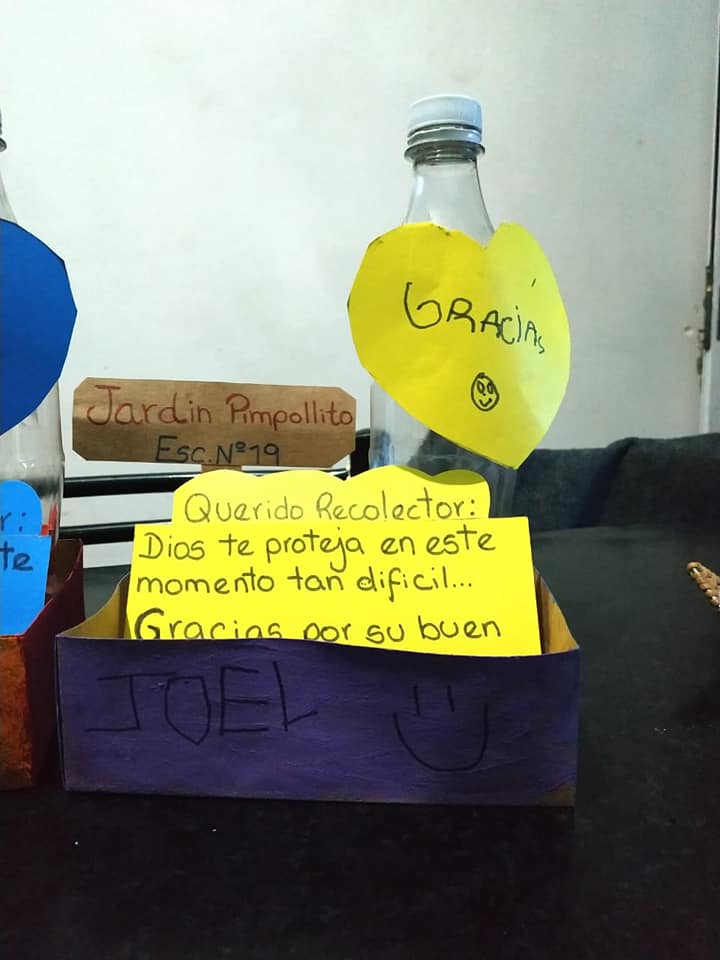 GRACIAS
Jardin Pimpollito
Esc.Nº19
Querido Recolector:
Dios te proteja en este
momento tan dificil...
Gracias por su buen
JOEL
r:
te